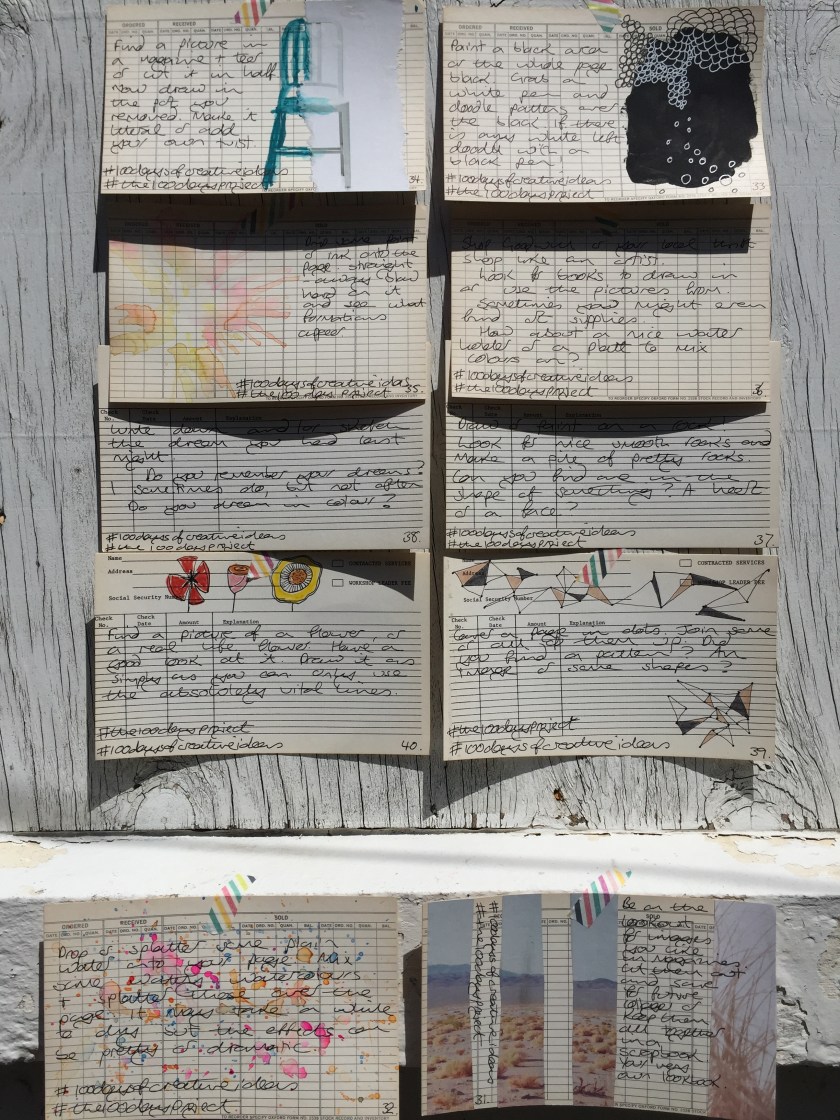 ORDERED RECEIVED SOLD
Find a picture in
a magazine + tear
or cut it in half
Now draw in
the part you
removed. Make it
literal or add
your own twist.
#100daysofcreativeideas
#the100daysproject
34
SOLD
Paint a black area
or the whole page
black. Grab a
white pen and
doodle patterns over
the black if there
is any white left
doodle with a
black pen
#100daysofcreativeideas
#the100daysproject
33
Drip some paint
or ink onto the
page. straight
away blow
hard on it
and see what
formations
appear
#100daysofcreativeideas
#the100daysproject
35
Shop Goodwill or your local thrift
shop like an artist.
Look for books to draw in
or use the pictures from.
Sometimes you might even
find art supplies.
How about a nice water
holder or a plate to mix
colours on?
#100daysofcreativeideas
#the100daysproject
36
Check No. Check Date Amount Explanation
Write down and/or sketch
the dream you had last
night
Do you remember your dreams?
I sometimes do, but not often
Do you dream in colour?
#100daysofcreativeideas
#the100daysproject
38.
Draw or paint on a rock!
Look for nice smooth rocks and
Make a pile of pretty rocks.
Can you find one in the
shape of something? A heart
or a face?
#100daysofcreativeideas
#the100daysproject
37
Name
Address
Social Security Number
CONTRACTED SERVICES
WORKSHOP LEADER FEE
Check No. Check Date Amount Explanation
Find a picture of a flower, or
a real life flower. Have a
good look at it. Draw it as
simply as you can only use
the absolutely vital lines.
#the100daysproject
#100daysofcreativeideas
40.
Name
Address
Social Security Number
CONTRACTED SERVICES
WORKSHOP LEADER FEE
Check No. Check Date Amount Explanation
Cover a page in dots. Join some
or all of them up. Did
you find a pattern? An
image or some shapes?
#the100daysproject
#100daysofcreativeideas
39.
ORDERED RECEIVED SOLD
Drop or splatter some plain
water onto your page. Mix
some watery watercolours
+ splatter those over the
page. It may take a while
to dry but the effects can
be pretty or dramatic.
#100daysofcreativeideas
#the100daysproject
32
#the100daysproject
#100daysofcreativeideas
31
Be on the
lookout
for images
you like
in magazines
cut them out
and save
for future
collage or
keep them
all together
in a
scrapbook
your very
own lookbook